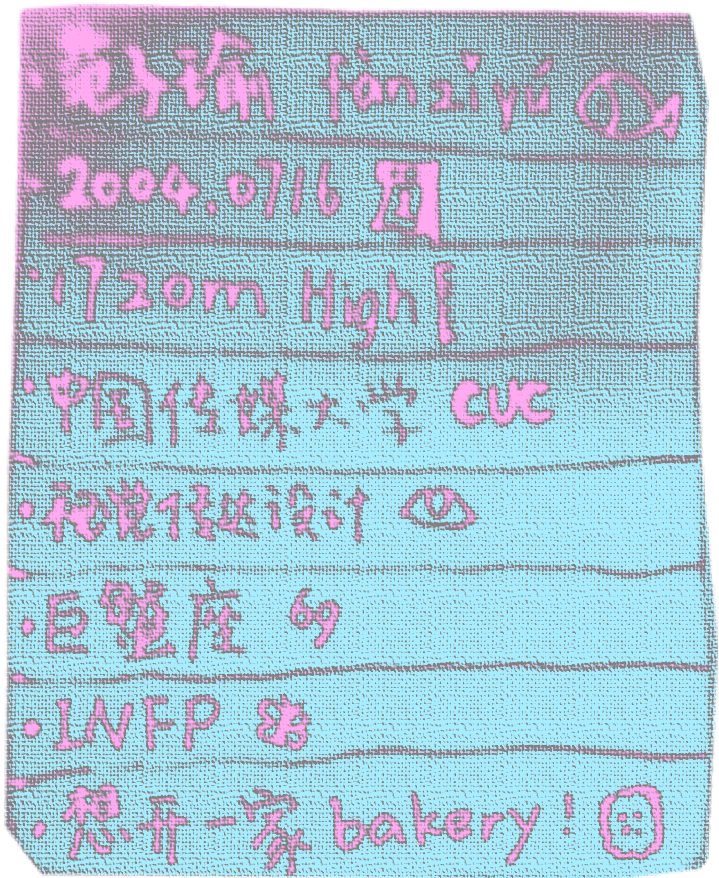 范子瑜 fàn zǐ yú
2004.0716
1720m High
中国传媒大学 CUC
视觉传达设计
巨蟹座 ♋
INFP
想开一家 bakery!